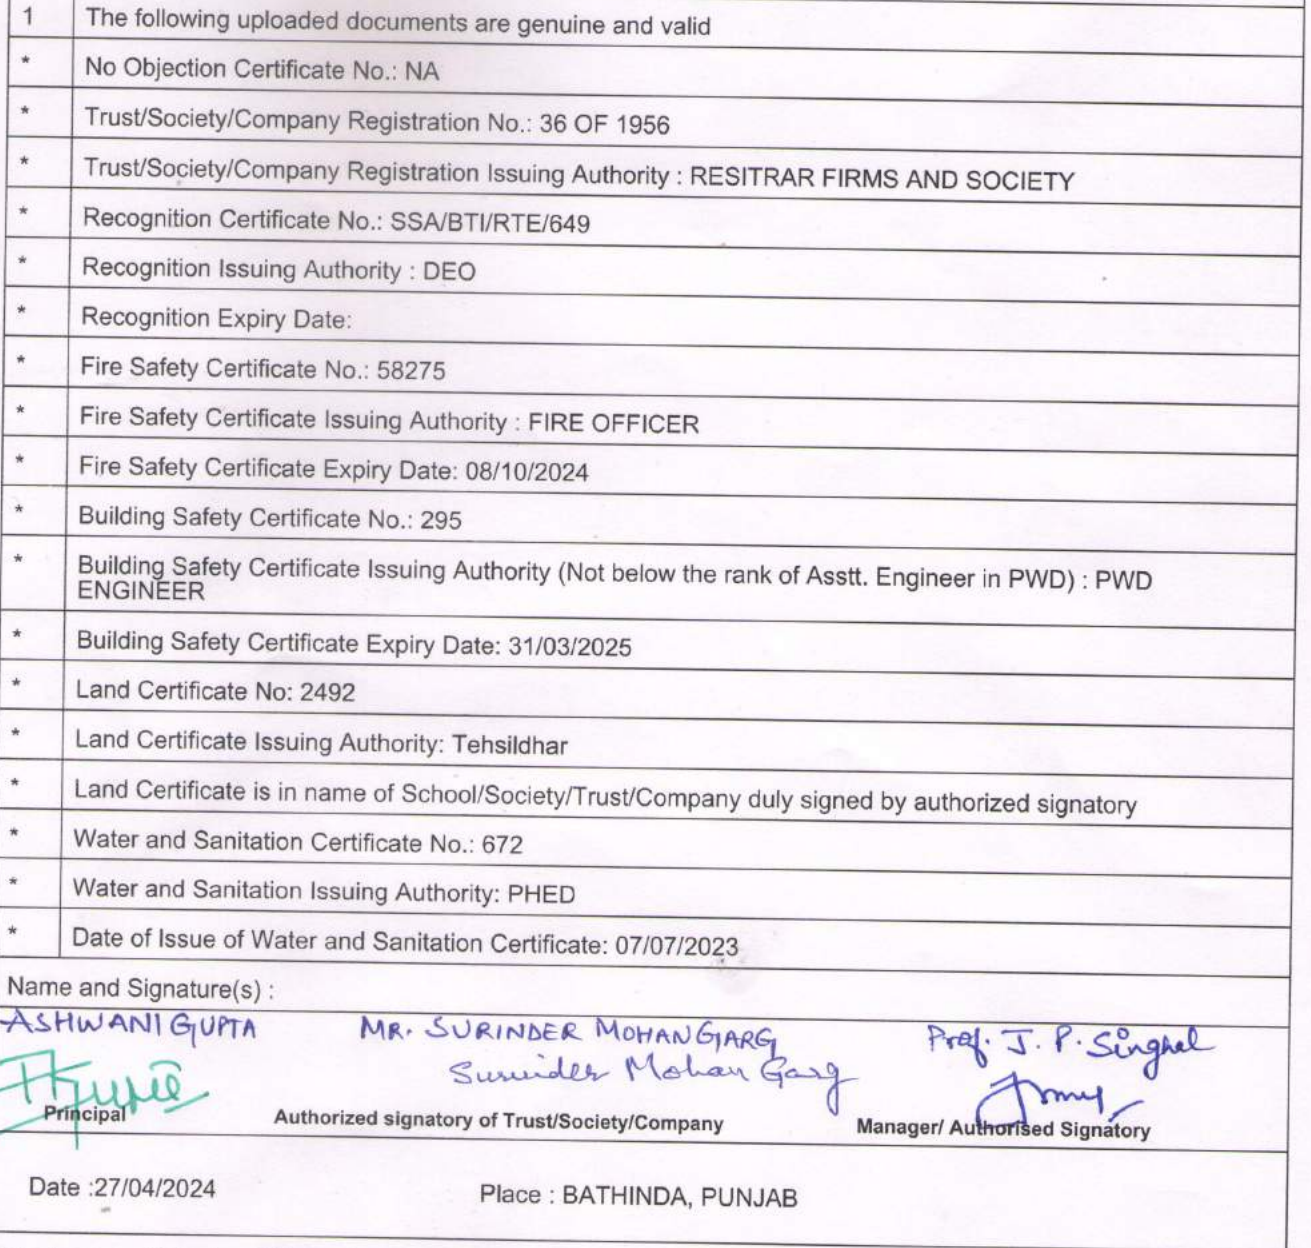 1 The following uploaded documents are genuine and valid
* No Objection Certificate No.: NA
* Trust/Society/Company Registration No.: 36 OF 1956
* Trust/Society/Company Registration Issuing Authority : RESITRAR FIRMS AND SOCIETY
* Recognition Certificate No.: SSA/BTI/RTE/649
* Recognition Issuing Authority : DEO
* Recognition Expiry Date:
* Fire Safety Certificate No.: 58275
* Fire Safety Certificate Issuing Authority : FIRE OFFICER
* Fire Safety Certificate Expiry Date: 08/10/2024
* Building Safety Certificate No.: 295
* Building Safety Certificate Issuing Authority (Not below the rank of Asstt. Engineer in PWD) : PWD
ENGINEER
* Building Safety Certificate Expiry Date: 31/03/2025
* Land Certificate No: 2492
* Land Certificate Issuing Authority: Tehsildhar
* Land Certificate is in name of School/Society/Trust/Company duly signed by authorized signatory
* Water and Sanitation Certificate No.: 672
* Water and Sanitation Issuing Authority: PHED
* Date of Issue of Water and Sanitation Certificate: 07/07/2023
Name and Signature(s) :
ASHWANI GUPTA MR. SURINDER MOHAN GARG Prof. J. P. Singhal
Surinder Mohan Garg
Principal Authorized signatory of Trust/Society/Company Manager/ Authorised Signatory
Date :27/04/2024 Place : BATHINDA, PUNJAB